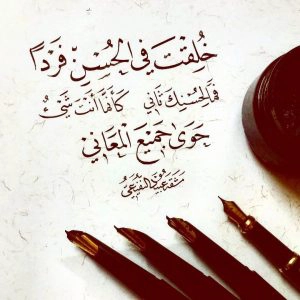 خُلِقْتَ فِي الْحُسْنِ فَرْدًا
فَمَا لِحُسْنِكَ ثَانِي كَأَنَّمَا أَنْتَ شَيْءٌ
حَوَى جَمِيعَ الْمَعَانِي
مشقه